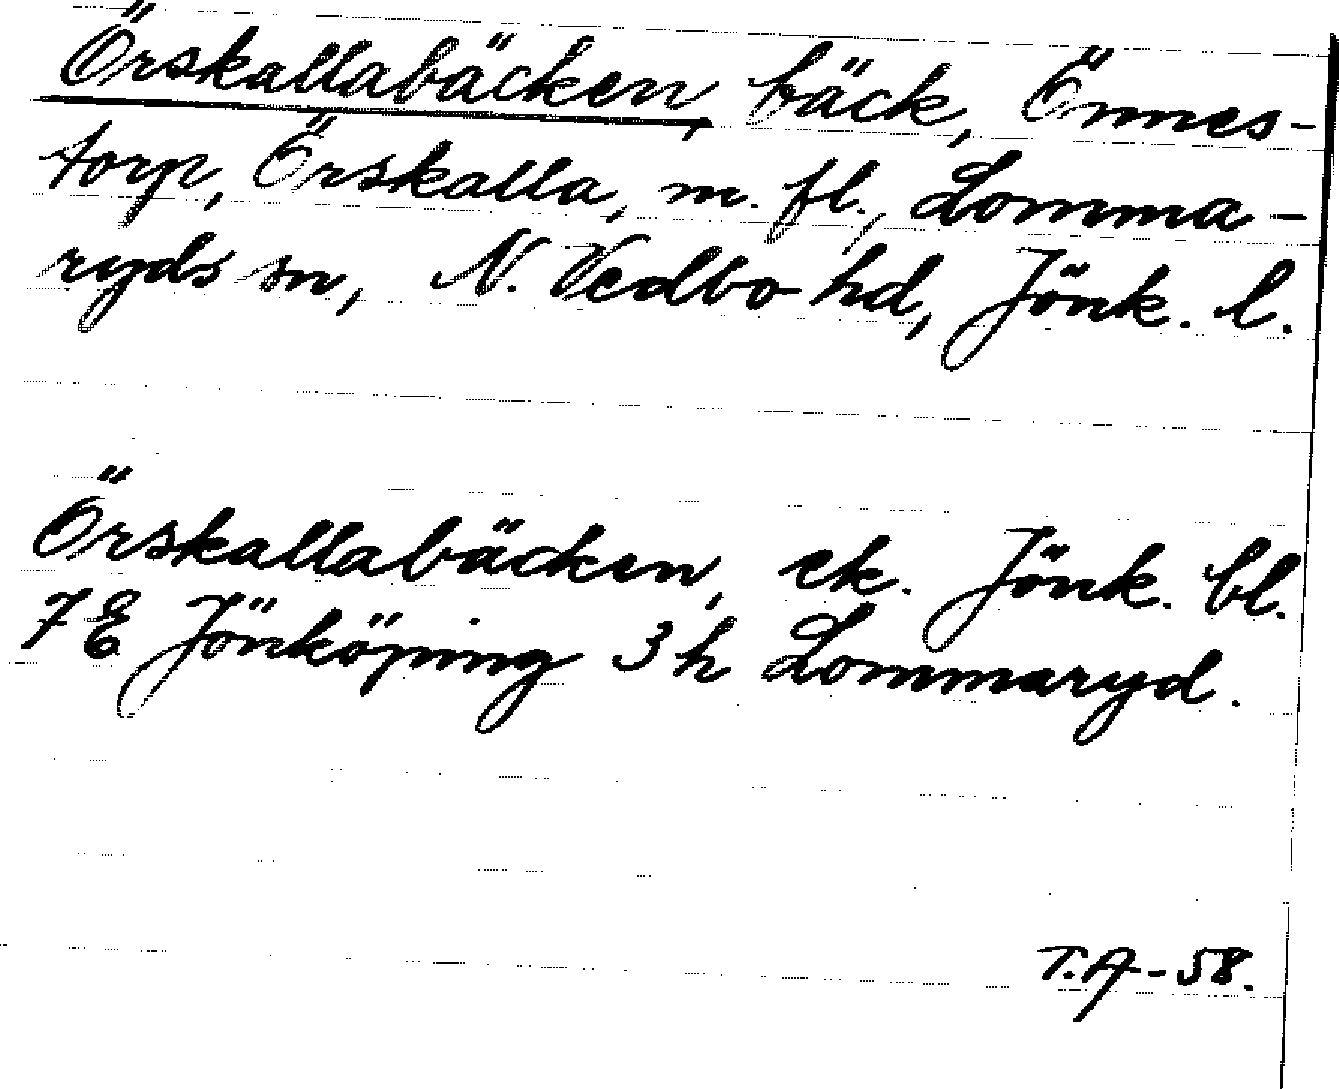 Örskallabäcken, bäck, Önnes-
torp, Örskalla, m. fl., Lomma-
ryds sn, N. Vedbo hd, Jönk. l.
Örskallabäcken, ek. Jönk. bl.
7E Jönköping 3h Lommaryd.
T.A-58.